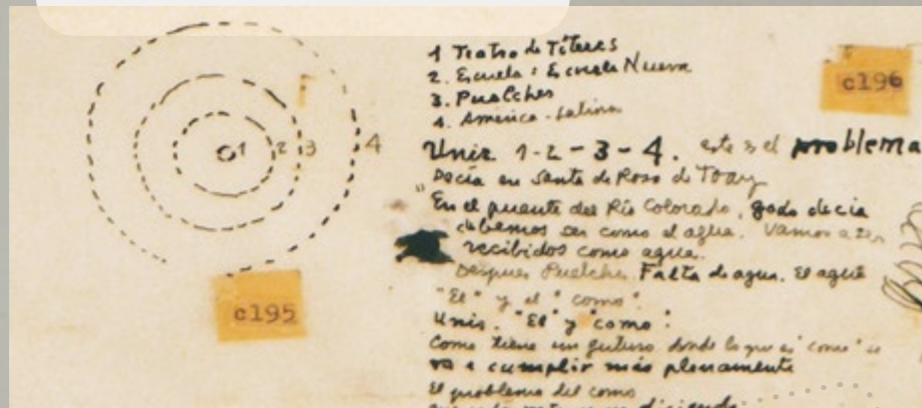 1 2 3 4
c195
1 Teatro de Títeres
2. Escuela : Escuela Nueva
3. Puelches
4. América-Latina
c196
Unir 1-2-3-4. este es el problema
Decía en Santa de Rosa de Toay
"En el puente del Río Colorado, godo decía
debemos ser como el agua. Vamos a ser
recibidos como agua.
Después Puelches Falta de agua. El agua
"El" y el "como".
Unir. "El" y "como":
Como tiene un futuro donde lo que es "como" se
va a cumplir más plenamente
El problema del como